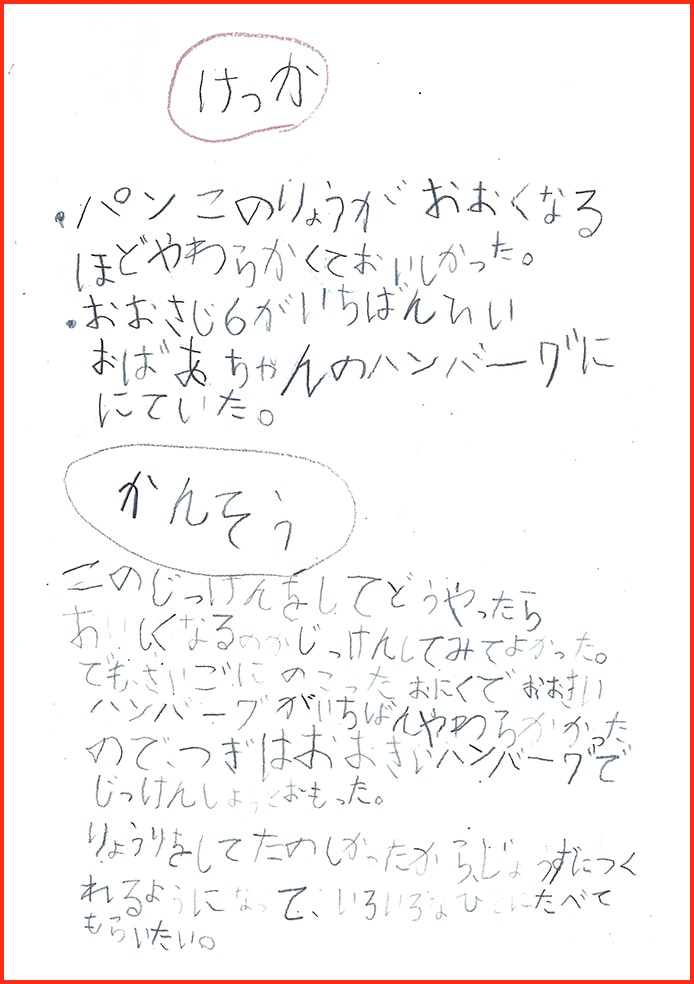 けっか
・パンこのりょうが おおくなる
ほどやわらかくておいしかった。
・おおさじ6がいちばんひい
おばあちゃんのハンバーグに
にていた。
かんそう
このじっけんをしてどうやったら
おいしくなるのかじっけんしてみてよかった。
でも、さいごに のこった おにくで おおきい
ハンバーグがいちばんやわらかかった
ので、つぎはおおきいハンバーグで
じっけんしようとおもった。
りょうりをしてたのしかったから、じょうずにつく
れるようになって、いろいろなひとにたべて
もらいたい。